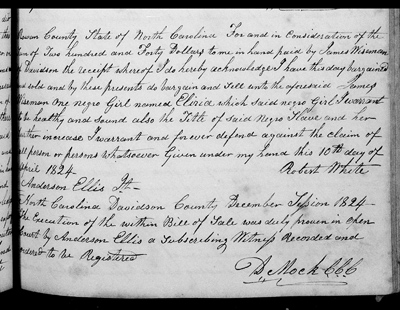 Rowan County State of North Carolina For and in Consideration of the
Sum of Two hundred and Forty Dollars to me in hand paid by James Wiseman
of Davidson the receipt whereof I do hereby acknowledge I have this day bargained
and sold and by these presents do bargain and Sell unto the aforesaid James
Wiseman One negro Girl named which Said negro Girl I warrant
to be healthy and Sound also the Title of Said Negro Slave and her
further increase I warrant and forever defend against the claim of
all person or persons whatsoever Given under my hand this 10th day of
April 1824 Robert White
Anderson Ellis Jt-
North Carolina Davidson County December Session 1824-
The Execution of the within Bill of Sale was duly proven in Open
Court by Anderson Ellis a Subscribing Witness Recorded and
Ordered to be Registered
D. Mock CCC